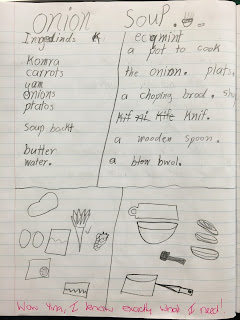 onion Soup.
Ingredinds
Komra
carrots
yam
onions
ptatos
Soup backt
butter
water.
ecqmint
a pot to cook
the onion. plats.
a choping brod.
Kife knif.
a wooden spoon.
a blow bwol.
Wow Yuna, I know exactly what I need!